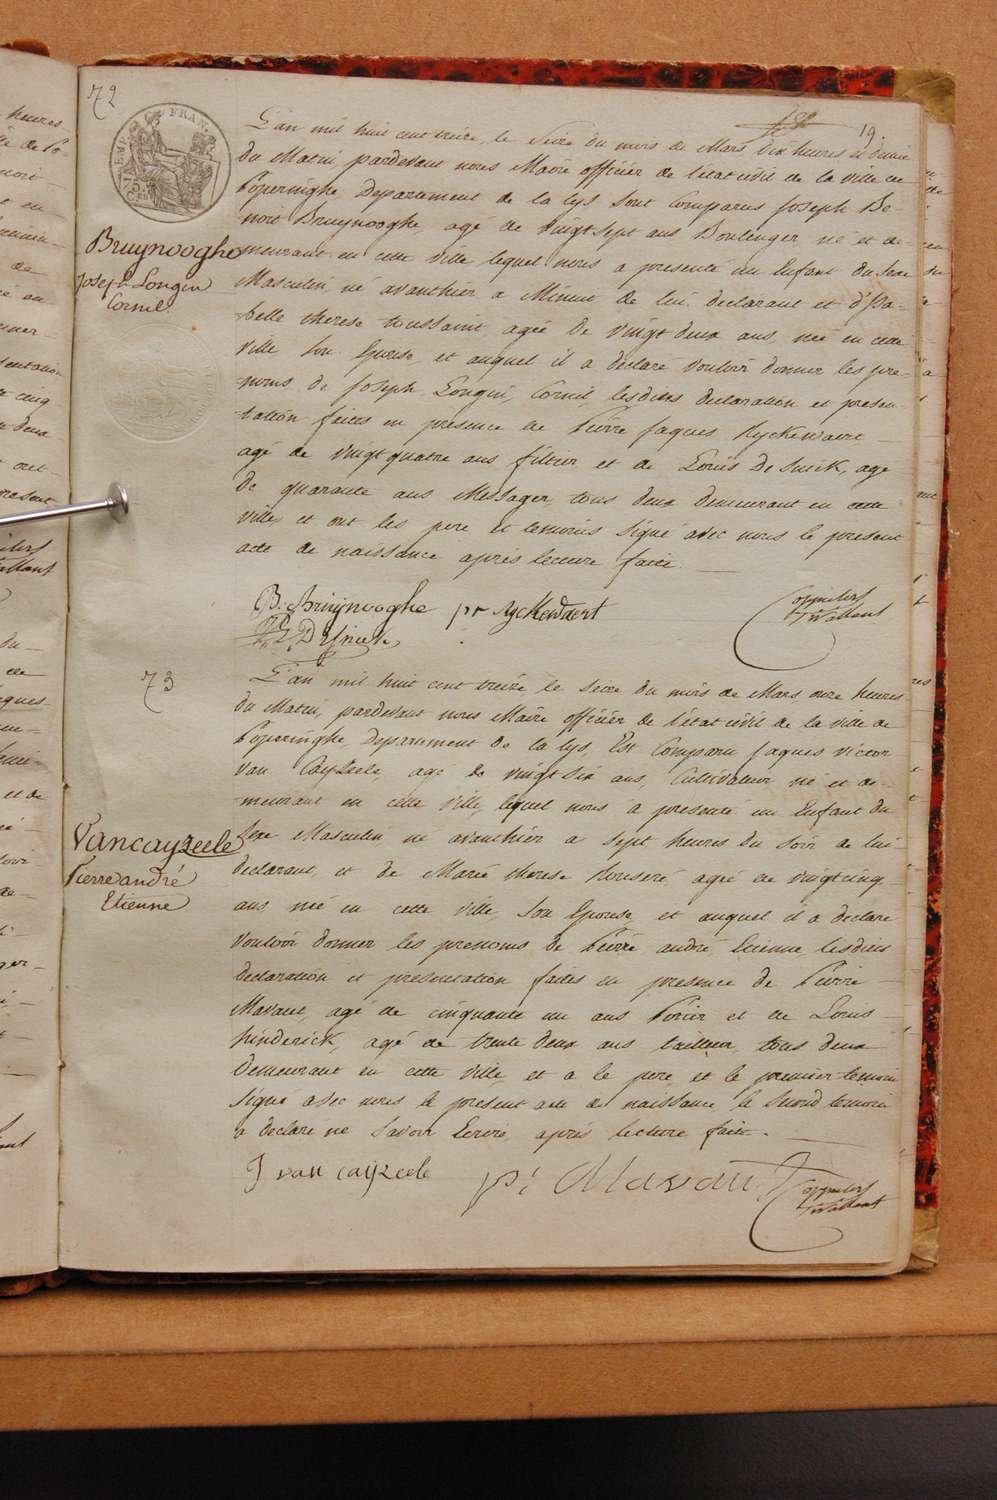 72
19.
L'an mil huit cent treize, le Seize du mois de Mars Dix heures et demie
du Matin, pardevant nous Maire officier de l'état civil de la ville de
Poperinghe, Departement de la Lys sont Comparus Joseph Be-
noit Bruynooghe, agé de vingt sept ans Boulenger né et de-
meurant en cette ville lequel nous a presenté un Enfant du Sexe
Masculin, né avanthier a Minuit de lui declarant et d'Isa-
belle therese toussaint agée de vingt deux ans, née en cette
ville son Epouse, et auquel il a declaré vouloir donner les pre-
noms de Joseph, Longin, Cornil, lesdites declaration et presen-
tation faites en presence de Pierre Jaques Ryckewaert
agé de vingt quatre ans filtier et de Louis De Snick, agé
de quarante ans Messager, tous deux demeurant en cette
ville, et ont les pere et temoins signé avec nous le present
acte de naissance après lecture faite.
Bruynooghe
Joseph Longin
Cornil
B. Bruynooghe pr Ryckewaert
L DeSnick
73
L'an mil huit cent treize le Seize du mois de Mars, onze heures
du Matin, pardevant nous Maire officier de l'état civil de la ville de
Poperinghe, Departement de la Lys, Est Comparu Jaques Victor
Van Cayzeele, agé de vingt six ans, Cultivateur né et de-
meurant en cette ville, lequel nous a presenté un Enfant du
Sexe Masculin né avanthier a sept heures du soir de lui
declarant, et de Marie therese agée de vingt cinq
ans née en cette ville, son Epouse, et auquel il a declaré
vouloir donner les prenoms de Pierre, andré, Etienne lesdites
declaration et presentation faites en presence de Pierre
Mavaut, agé de cinquante un ans et de Louis
hinderick, agé de trente deux ans tailleur, tous deux
Demeurant en cette ville, et a le pere, et le premier temoin
signé avec nous le present acte de naissance, le second temoin
a declaré ne savoir Ecrire, après lecture faite.
Vancayzeele
Pierre andré
Etienne
J van cayzeele pr Mavaut